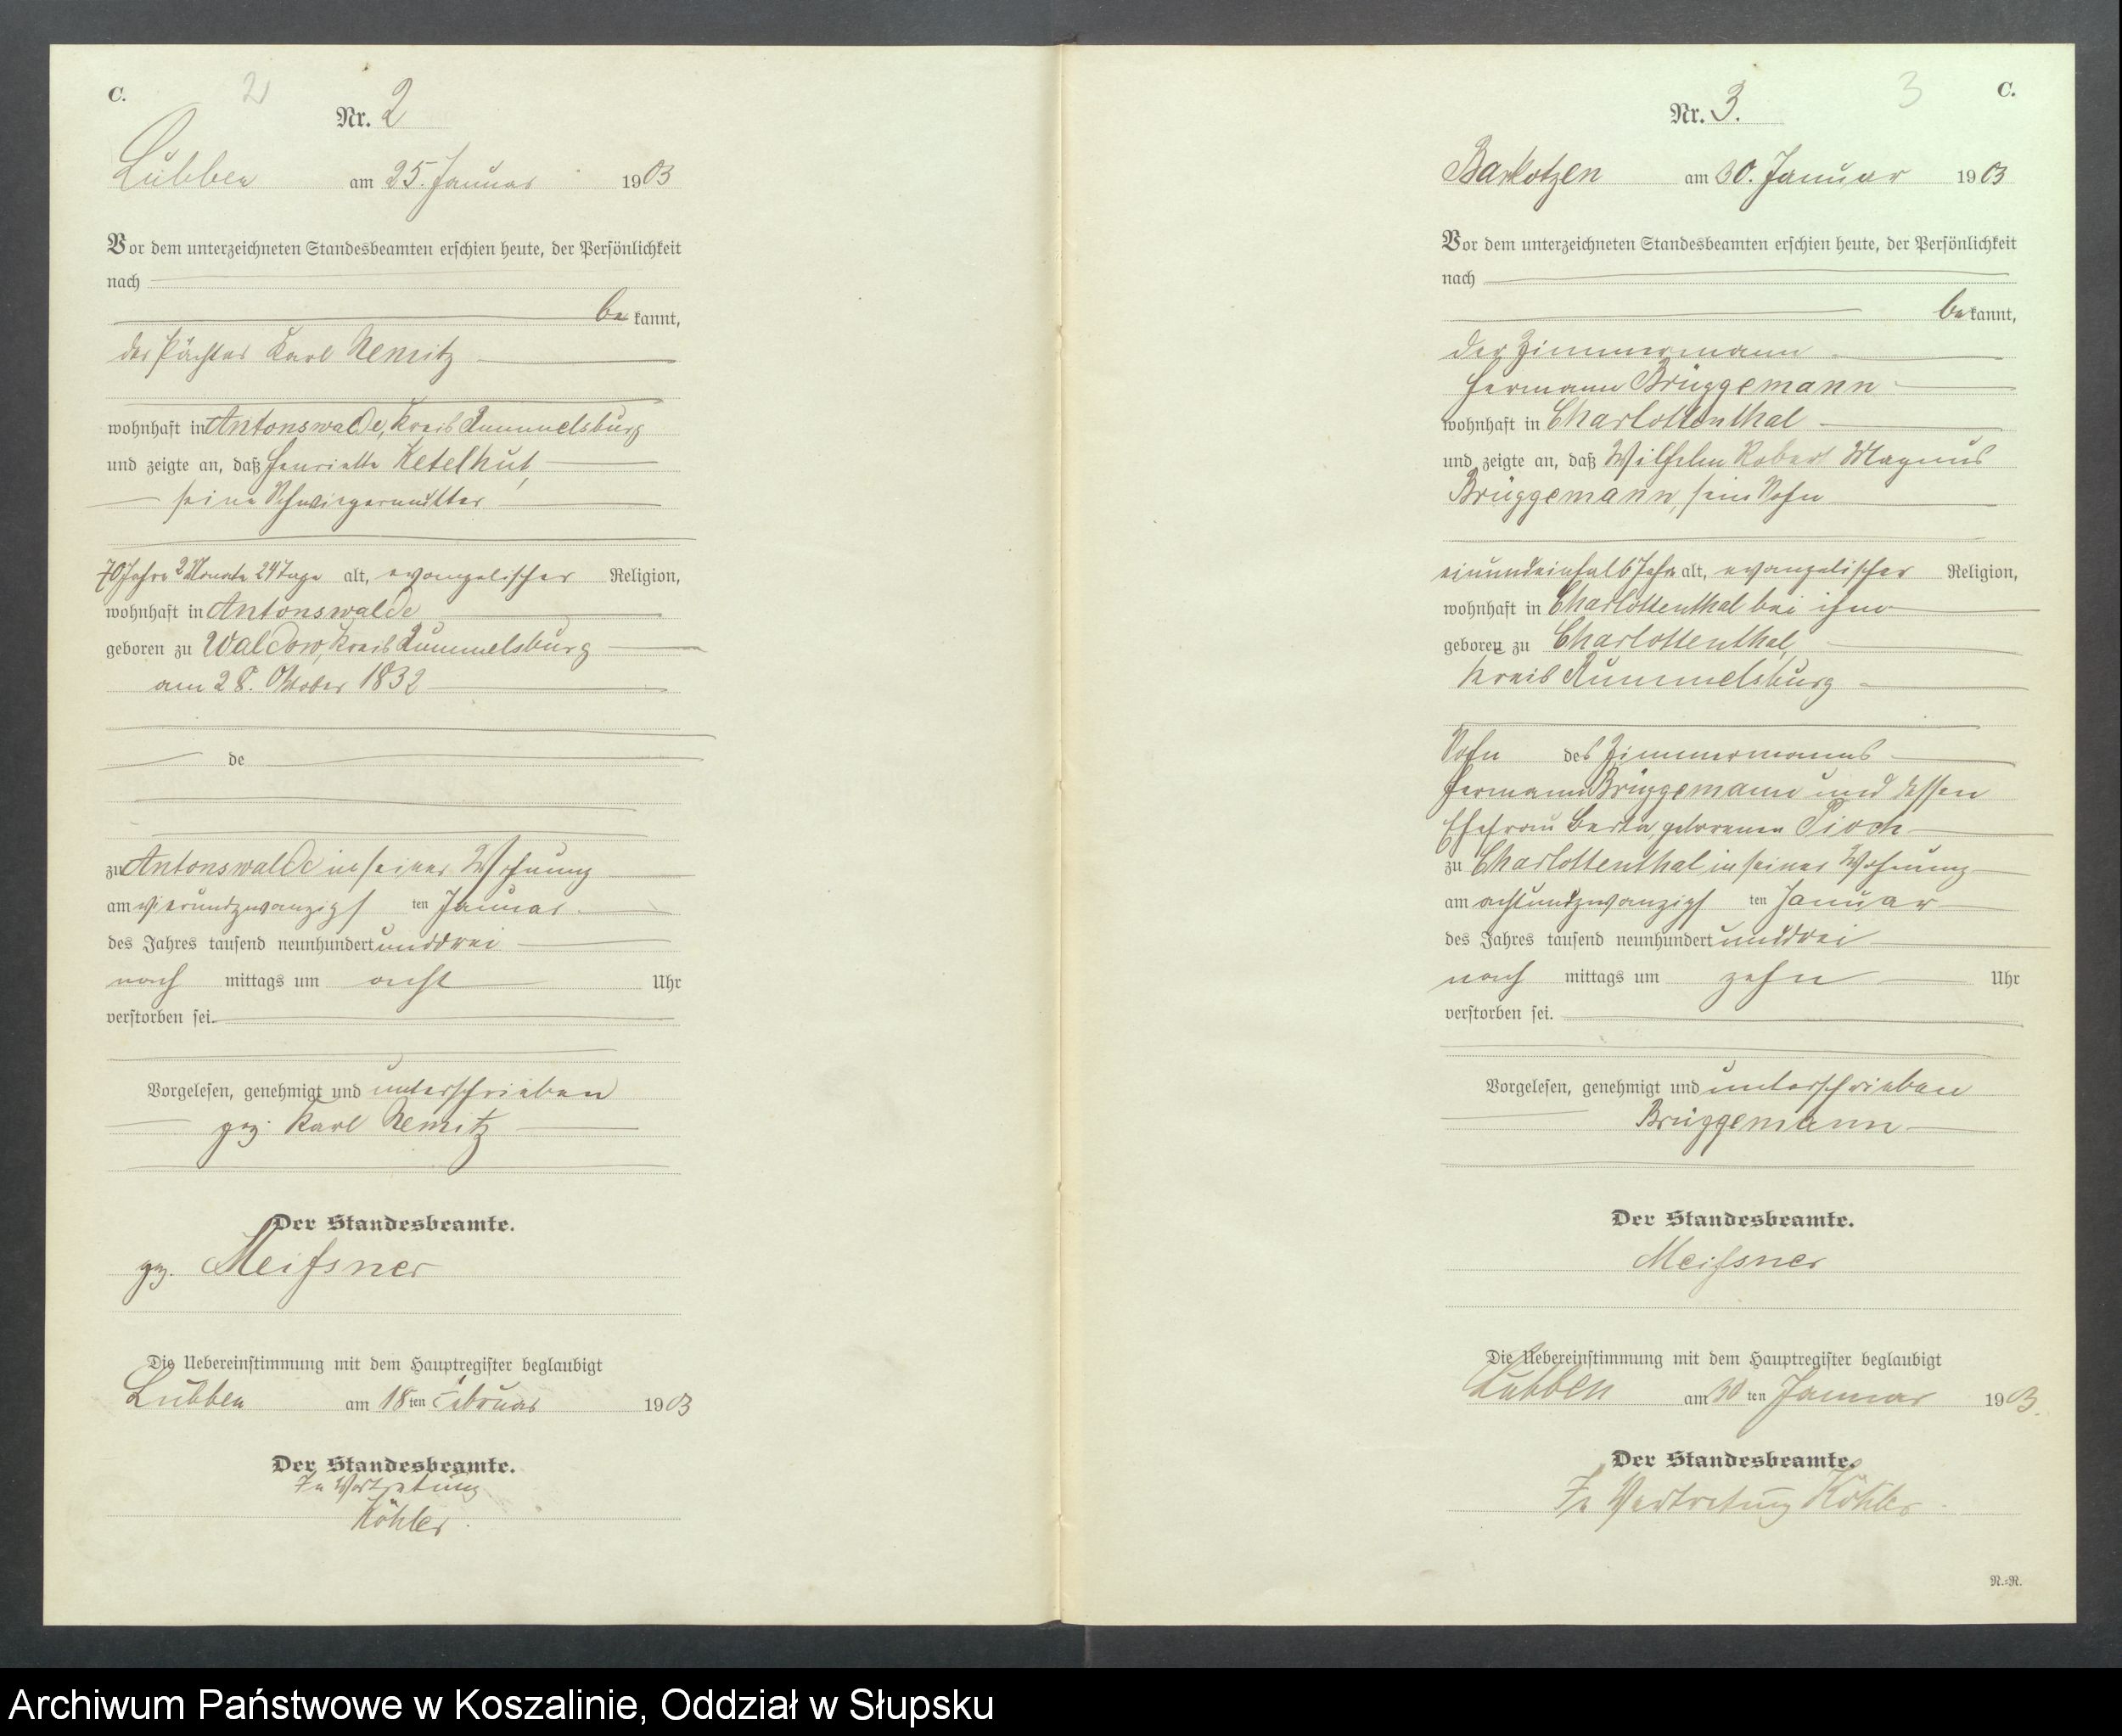 C.
2
Nr. 2
Lübben am 25. Januar 1903
Vor dem unterzeichneten Standesbeamten erschien heute, der Persönlichkeit
nach
be kannt,
der Pächter Karl Nemitz
wohnhaft in Antonswalde, Kreis Rummelsburg
und zeigte an, daß Henriette Ketelhut,
seine Schwiegermutter
70 Jahre 2 Monate 24 Tage alt, evangelischer Religion,
wohnhaft in Antonswalde
geboren zu Waldow, Kreis Rummelsburg
am 28. Oktober 1832
de
zu Antonswalde in seiner Wohnung
am vierundzwanzigs ten Januar
des Jahres tausend neunhundert unddrei
nach mittags um acht Uhr
verstorben sei.
Vorgelesen, genehmigt und unterschrieben
gez. Karl Nemitz
Der Standesbeamte.
gez. Meißner
Die Uebereinstimmung mit dem Hauptregister beglaubigt
Lübben am 18 ten Februar 1903
Der Standesbeamte.
In Vertretung
Köhler
3
C.
Nr. 3.
Barkotzen am 30. Januar 1903
Vor dem unterzeichneten Standesbeamten erschien heute, der Persönlichkeit
nach
be kannt,
der Zimmermann
Hermann Brüggemann
wohnhaft in Charlottenthal
und zeigte an, daß Wilhelm Robert Magnus
Brüggemann, sein Sohn
einundeinhalb Jahr alt, evangelischer Religion,
wohnhaft in Charlottenthal bei ihm
geboren zu Charlottenthal,
Kreis Rummelsburg
Sohn des Zimmermanns
Hermann Brüggemann und dessen
Ehefrau Berta, geborenen Pioch
zu Charlottenthal in seiner Wohnung
am achtundzwanzigs ten Januar
des Jahres tausend neunhundert unddrei
nach mittags um zehn Uhr
verstorben sei.
Vorgelesen, genehmigt und unterschrieben
Brüggemann
Der Standesbeamte.
Meißner
Die Uebereinstimmung mit dem Hauptregister beglaubigt
Lübben am 30 ten Januar 1903.
Der Standesbeamte.
In Vertretung Köhler
R.=R.
Archiwum Państwowe w Koszalinie, Oddział w Słupsku